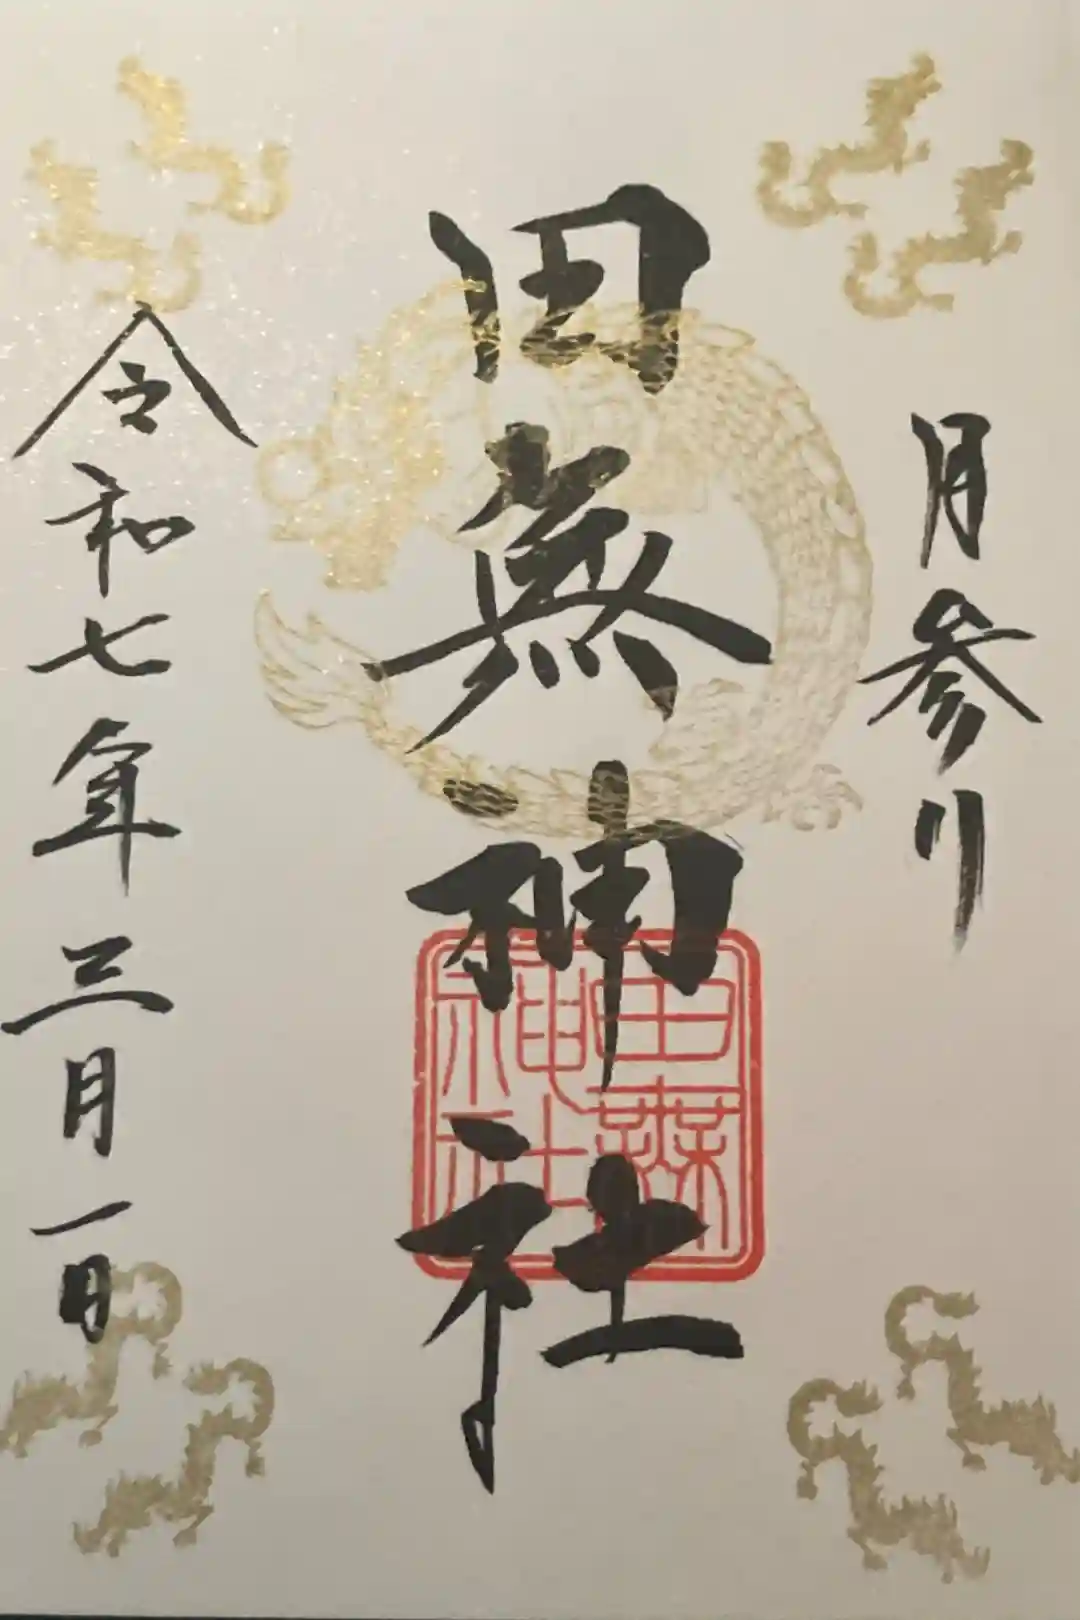 月参り
田無神社
田無
神社
令和七年三月一日